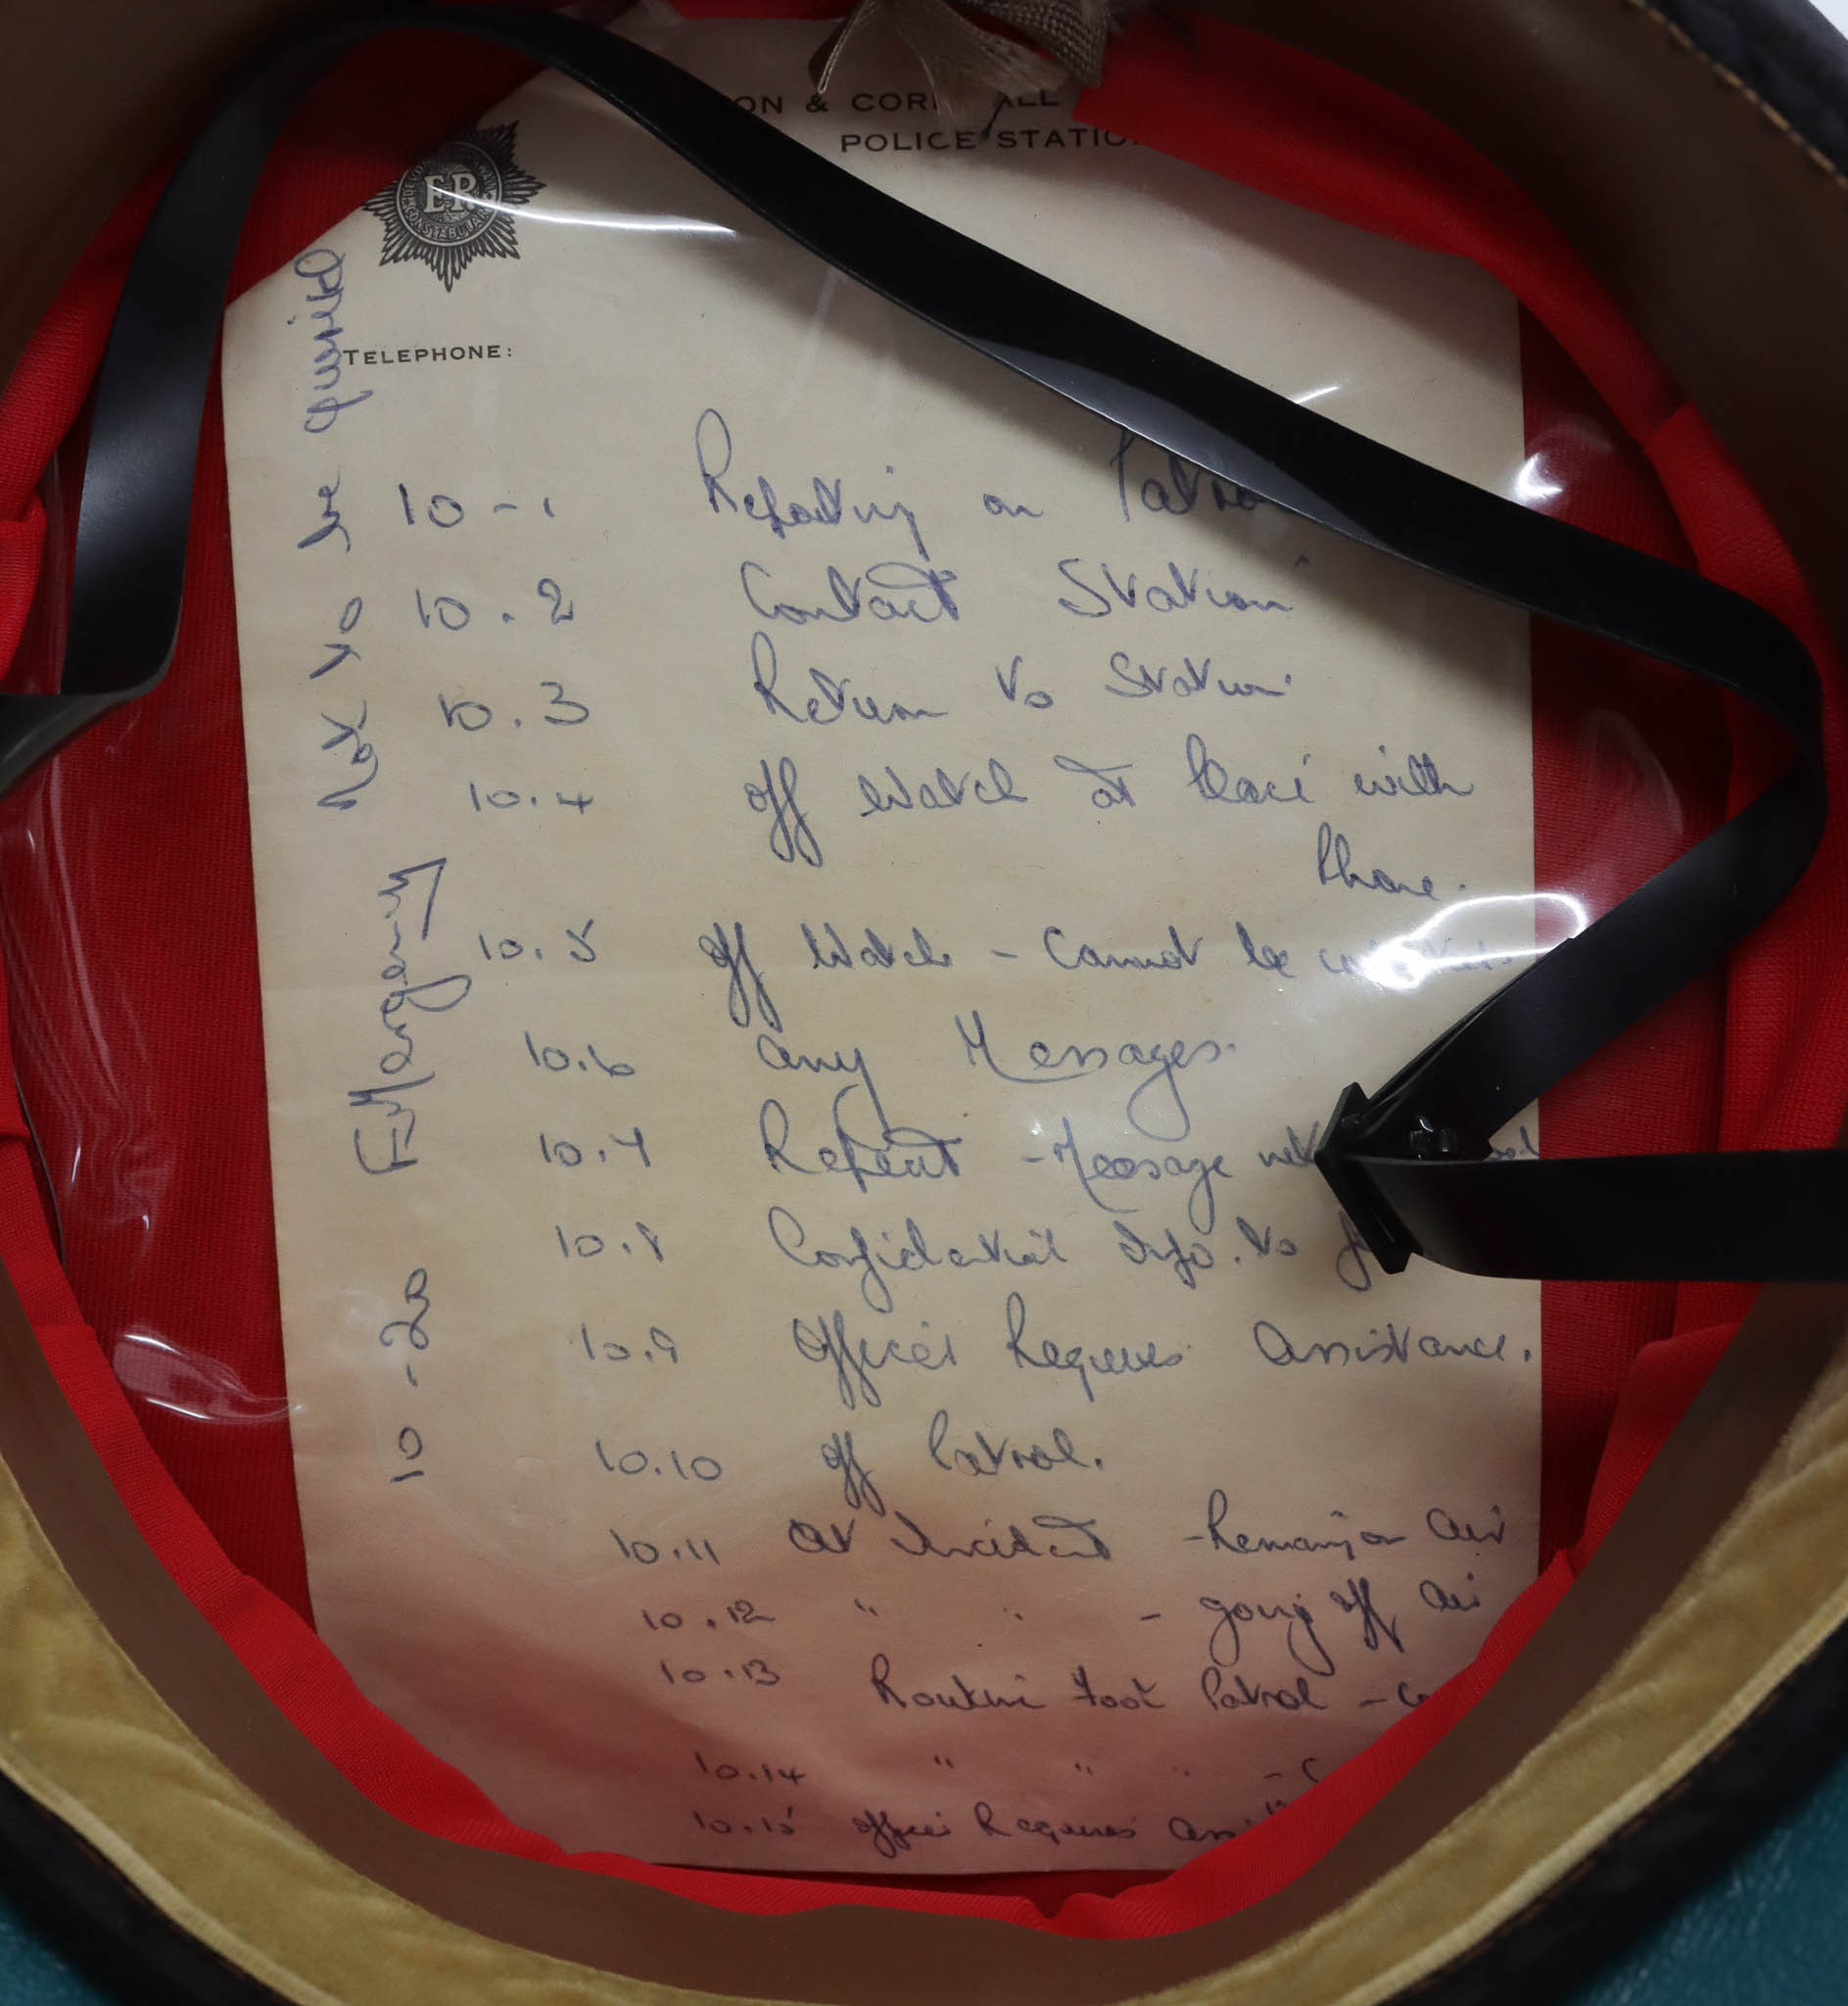 ON & COR ALL
POLICE STATIO
ER
CONSTABULARY
TELEPHONE:
10-1 Reporting on Patrol
10.2 Contact Station
10.3 Return to Station
10.4 off Watch at Place with
Phone.
10.5 off Watch - Cannot be
10.6 Any Messages.
10.7 Repeat - Message not
10.8 Confidential Info. to
10.9 Officer Requires Assistance.
10.10 off Patrol.
10.11 At Incident - Remaing on Air
10.12 " " - going off Air
10.13 Routine Foot Patrol - C
10.14 " " " - C
10.15 Officer Requires Assis
10-20 EMergency Not to be queried